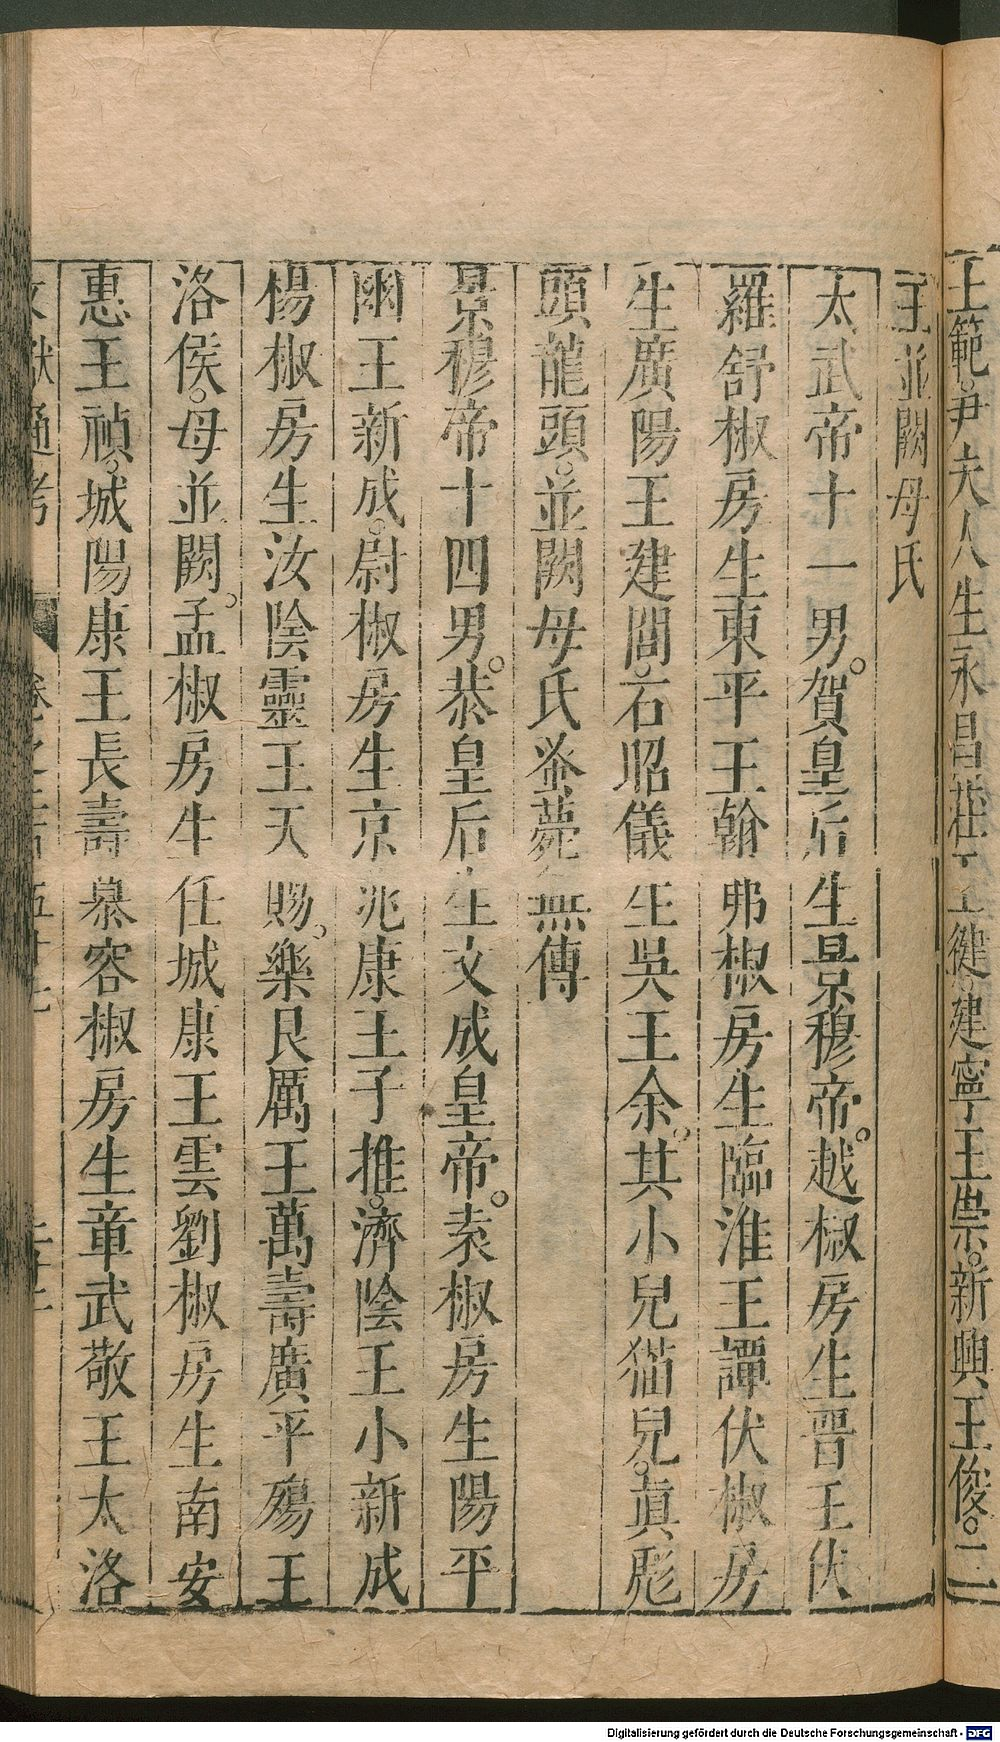 王範尹夫人生永昌莊王健建寧王崇新興王俊二
王並闕母氏
太武帝十一男賀皇后生景穆帝越椒房生晋王伏
羅舒椒房生東平王翰弗椒房生臨淮王譚伏椒房
生廣陽王建閭石昭儀生吳王余其小兒猫兒眞彪
頭龍頭並闕母氏蚤薨無傳
景穆帝十四男恭皇后生文成皇帝袁椒房生陽平
幽王新成尉椒房生京兆康王子推濟陰王小新成
楊椒房生汝陰靈王天賜樂良厲王萬壽廣平殤王
洛侯母並闕孟椒房生任城康王雲劉椒房生南安
惠王禎城陽康王長壽慕容椒房生章武敬王太洛
文獻通考 卷之二百五十七
Digitalisierung gefördert durch die Deutsche Forschungsgemeinschaft - DFG